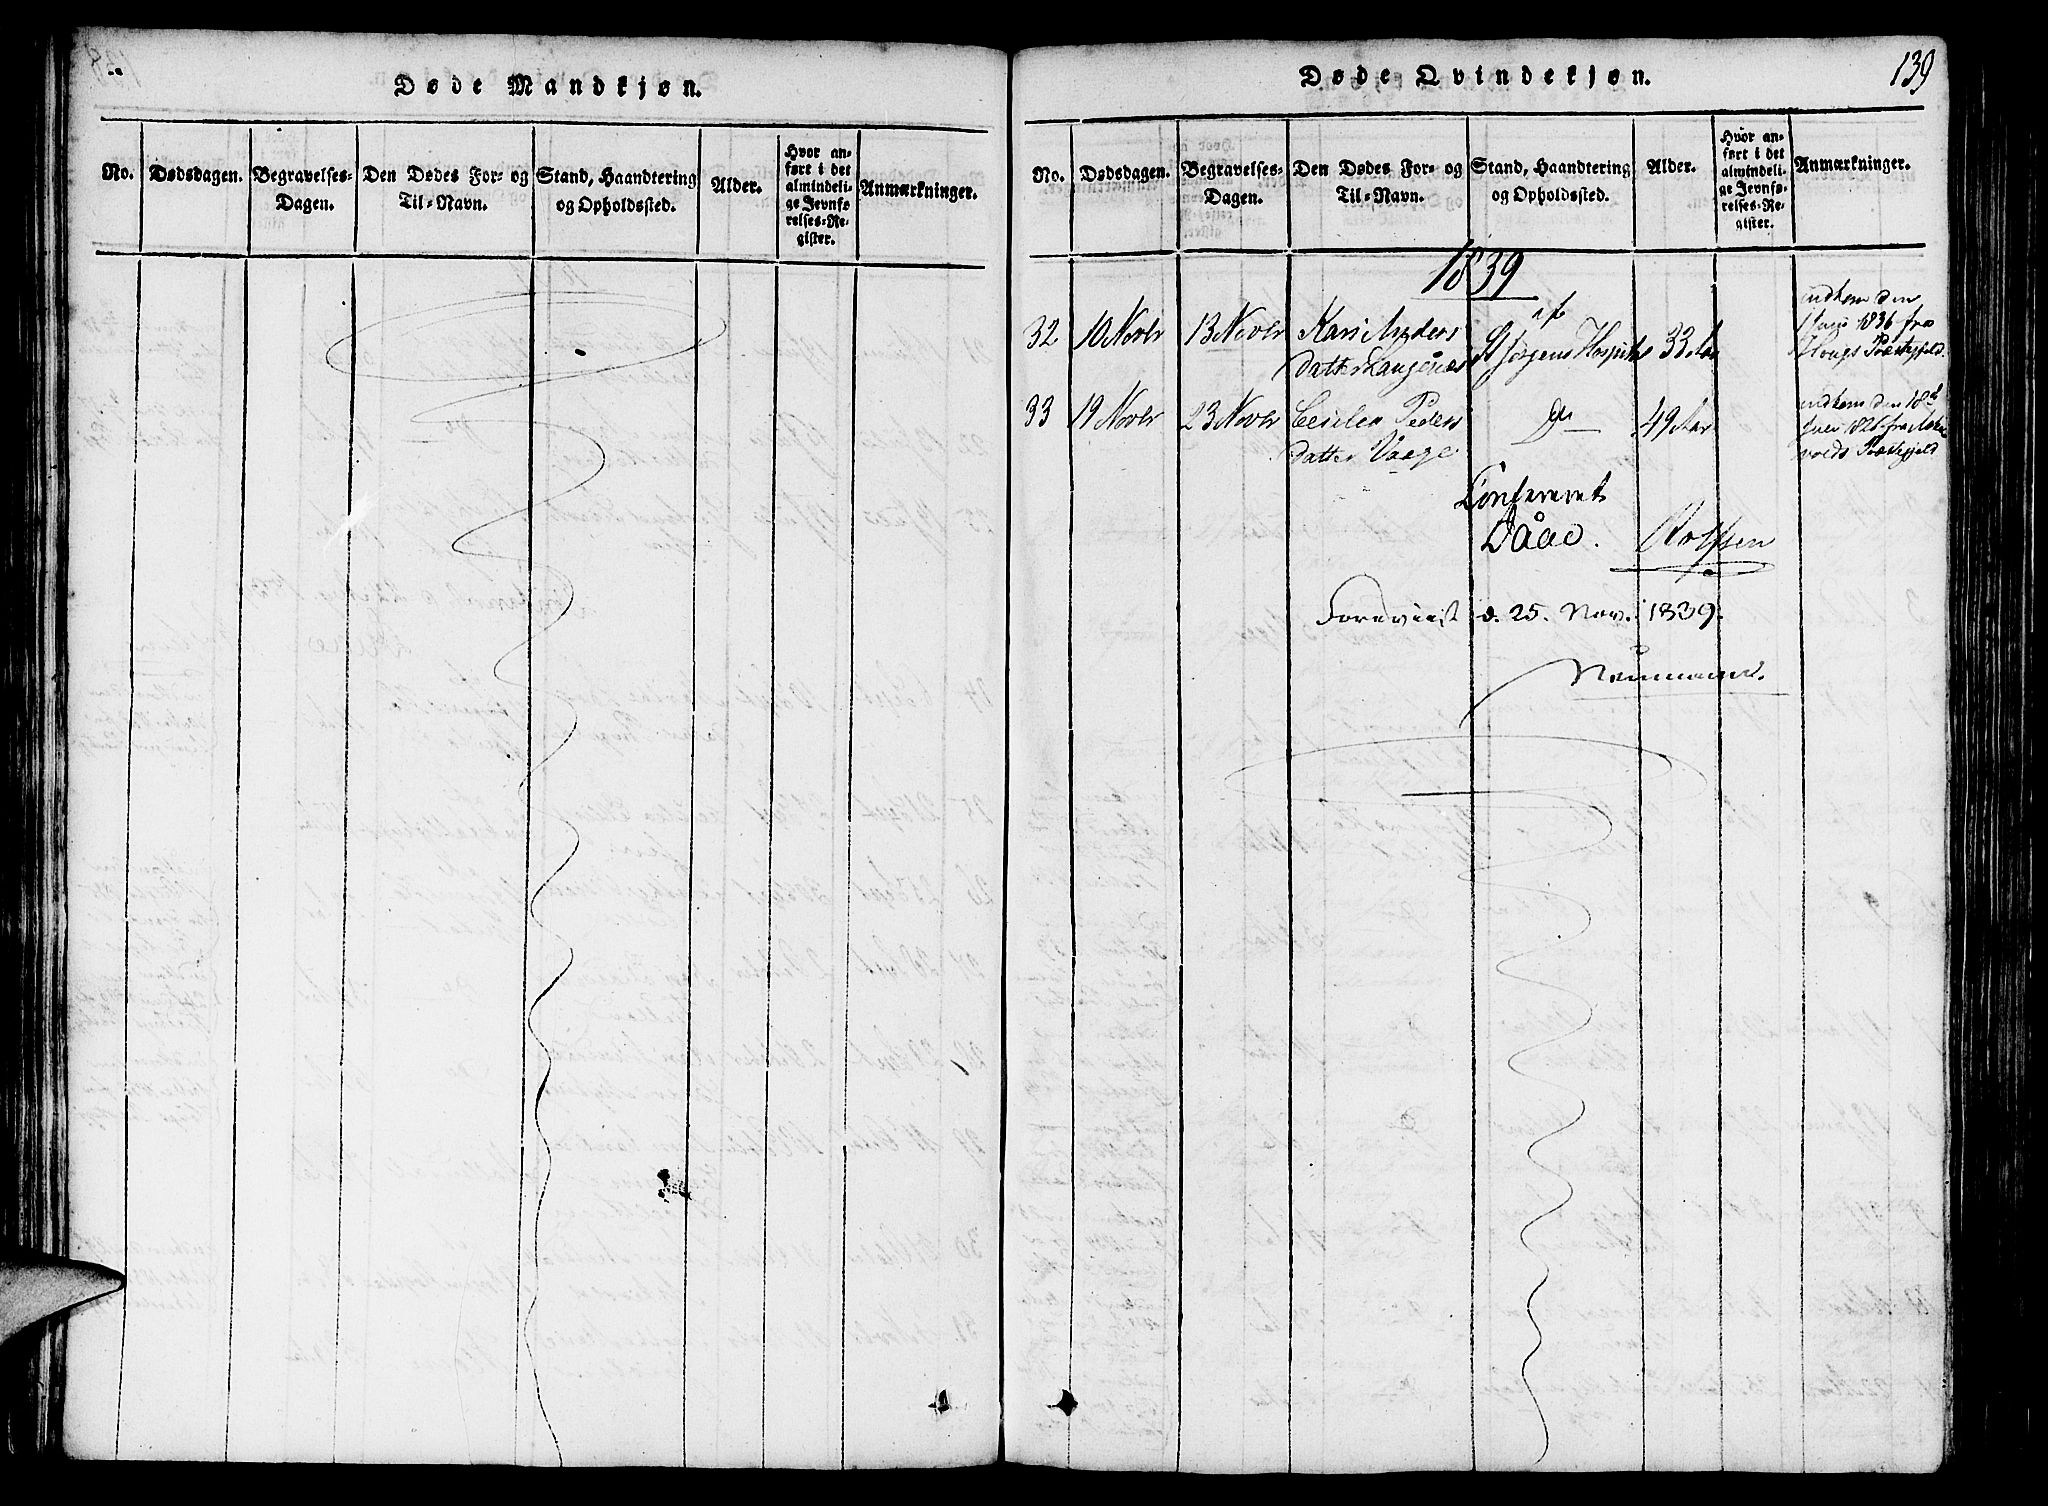 Døde Mandkjøn.
No. Dødsdagen. Begravelses-Dagen. Den Dødes For- og Til-Navn. Stand, Haandtering og Opholdssted. Alder. Hvor anført i det almindelige Jevnførelses-Register. Anmærkninger.
139
Døde Qvindekjøn.
No. Dødsdagen. Begravelses-Dagen. Den Dødes For- og Til-Navn. Stand, Haandtering og Opholdssted. Alder. Hvor anført i det almindelige Jevnførelses-Register. Anmærkninger.
1839
32 10 Novbr 13 Novbr Kari Anders
datter Langenæs St Jørgens Hospital 33 Aar indkom den
1836 fra
Præstegjeld
33 19 Novbr 23 Novbr Cesilia Peders
datter Vaage do 49 Aar indkom den 18d
fra
Præstegjeld
Confereret
Dåae. Rolfsen
Foreviist d. 25. Nov. 1839.
Neumann.